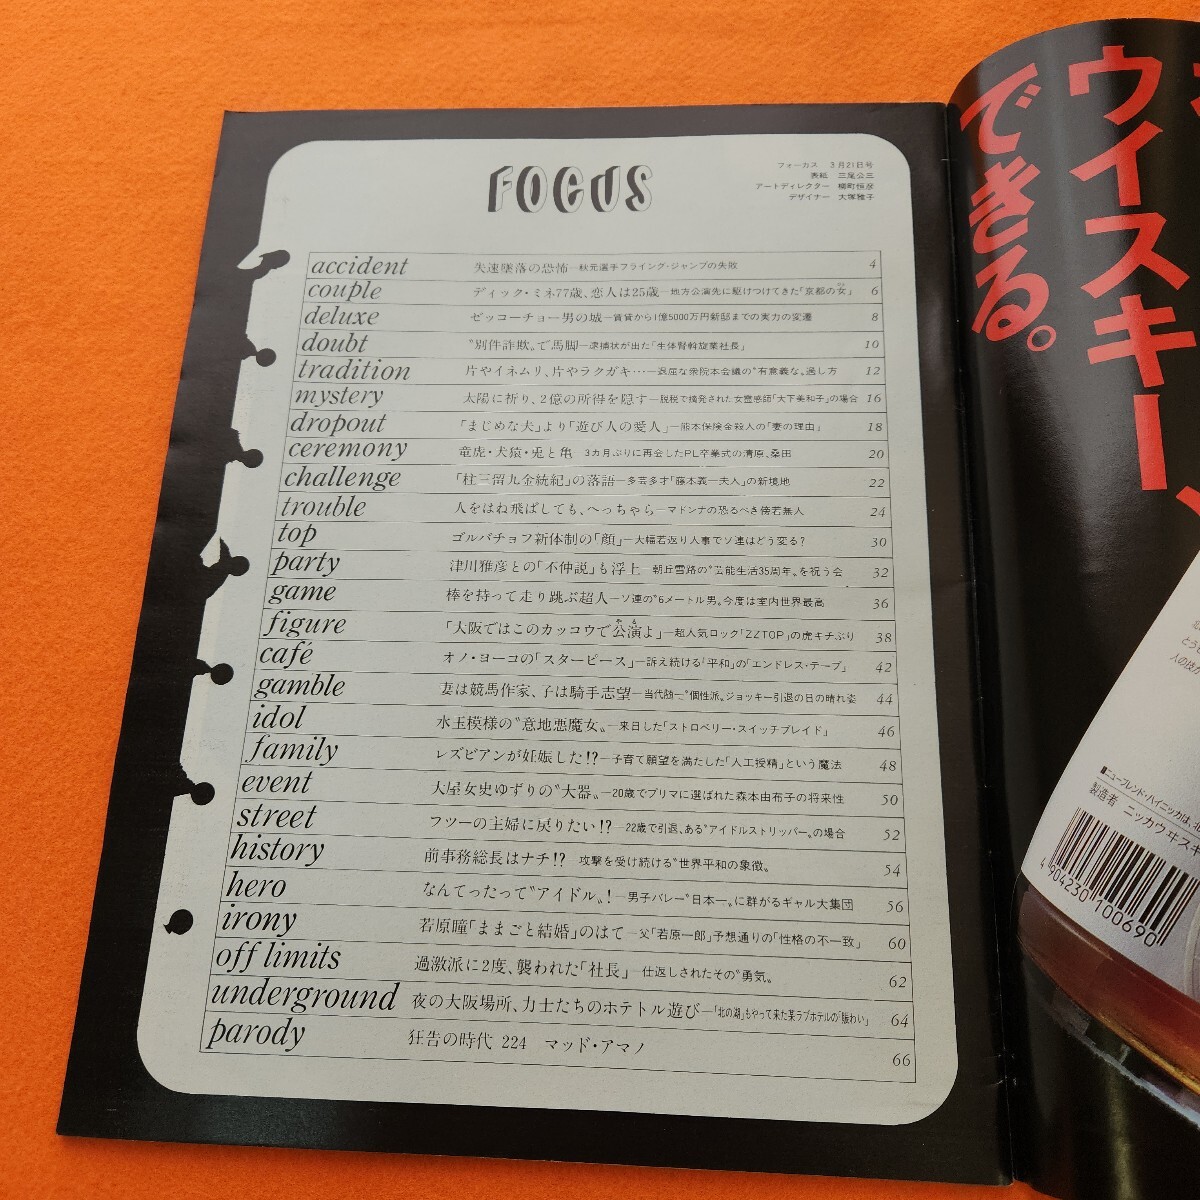 FOCUS
フォーカス 3月21日号
表紙 三尾公三
アートディレクター 柳町恒彦
デザイナー 大塚雅子
accident 失速墜落の恐怖―秋元選手フライング・ジャンプの失敗 4
couple ディック・ミネ77歳、恋人は25歳―地方公演先に駆けつけてきた「京都の女」 6
deluxe ゼッコーチョー男の城―賃貸から1億5000万円新邸までの実力の変遷 8
doubt 〝別件詐欺〟で馬脚―逮捕状が出た「生体腎斡旋業社長」 10
tradition 片やイネムリ、片やラクガキ…―退屈な衆院本会議の〝有意義な〟過し方 12
mystery 太陽に祈り、2億の所得を隠す―脱税で摘発された女霊感師「大下美和子」の場合 16
dropout 「まじめな夫」より「遊び人の愛人」―熊本保険金殺人の「妻の理由」 18
ceremony 竜虎・犬猿・兎と亀 3カ月ぶりに再会したPL卒業式の清原、桑田 20
challenge 「柱三留九金統紀」の落語―多芸多才「藤本義一夫人」の新境地 22
trouble 人をはね飛ばしても、へっちゃら―マドンナの恐るべき傍若無人 24
top ゴルバチョフ新体制の「顔」―大幅若返り人事でソ連はどう変る? 30
party 津川雅彦との「不仲説」も浮上―朝丘雪路の〝芸能生活35周年〟を祝う会 32
game 棒を持って走り跳ぶ超人―ソ連の〝6メートル男〟今度は室内世界最高 36
figure 「大阪ではこのカッコウで公演よ」―超人気ロック「ZZTOP」の虎キチぶり 38
café オノ・ヨーコの「スターピース」―訴え続ける「平和」の「エンドレス・テープ」 42
gamble 妻は競馬作家、子は騎手志望―当代随一〝個性派〟ジョッキー引退の日の晴れ姿 44
idol 水玉模様の〝意地悪魔女〟―来日した「ストロベリー・スイッチブレイド」 46
family レズビアンが妊娠した!?―子育て願望を満たした「人工授精」という魔法 48
event 大屋女史ゆずりの〝大器〟―20歳でプリマに選ばれた森本由布子の将来性 50
street フツーの主婦に戻りたい!?―22歳で引退、ある〝アイドルストリッパー〟の場合 52
history 前事務総長はナチ!? 攻撃を受け続ける〝世界平和の象徴〟 54
hero なんてったって〝アイドル〟!―男子バレー〝日本一〟に群がるギャル大集団 56
irony 若原瞳「ままごと結婚」のはて―父「若原一郎」予想通りの「性格の不一致」 60
off limits 過激派に2度、襲われた「社長」―仕返しされたその〝勇気〟 62
underground 夜の大阪場所、力士たちのホテトル遊び―「北の湖」もやって来た某ラブホテルの「賑わい」 64
parody 狂告の時代 224 マッド・アマノ 66
ウイスキー、
できる。
■ニューブレンド・ハイニッカは、
製造者 ニッカウヰスキ
4 904230 100690